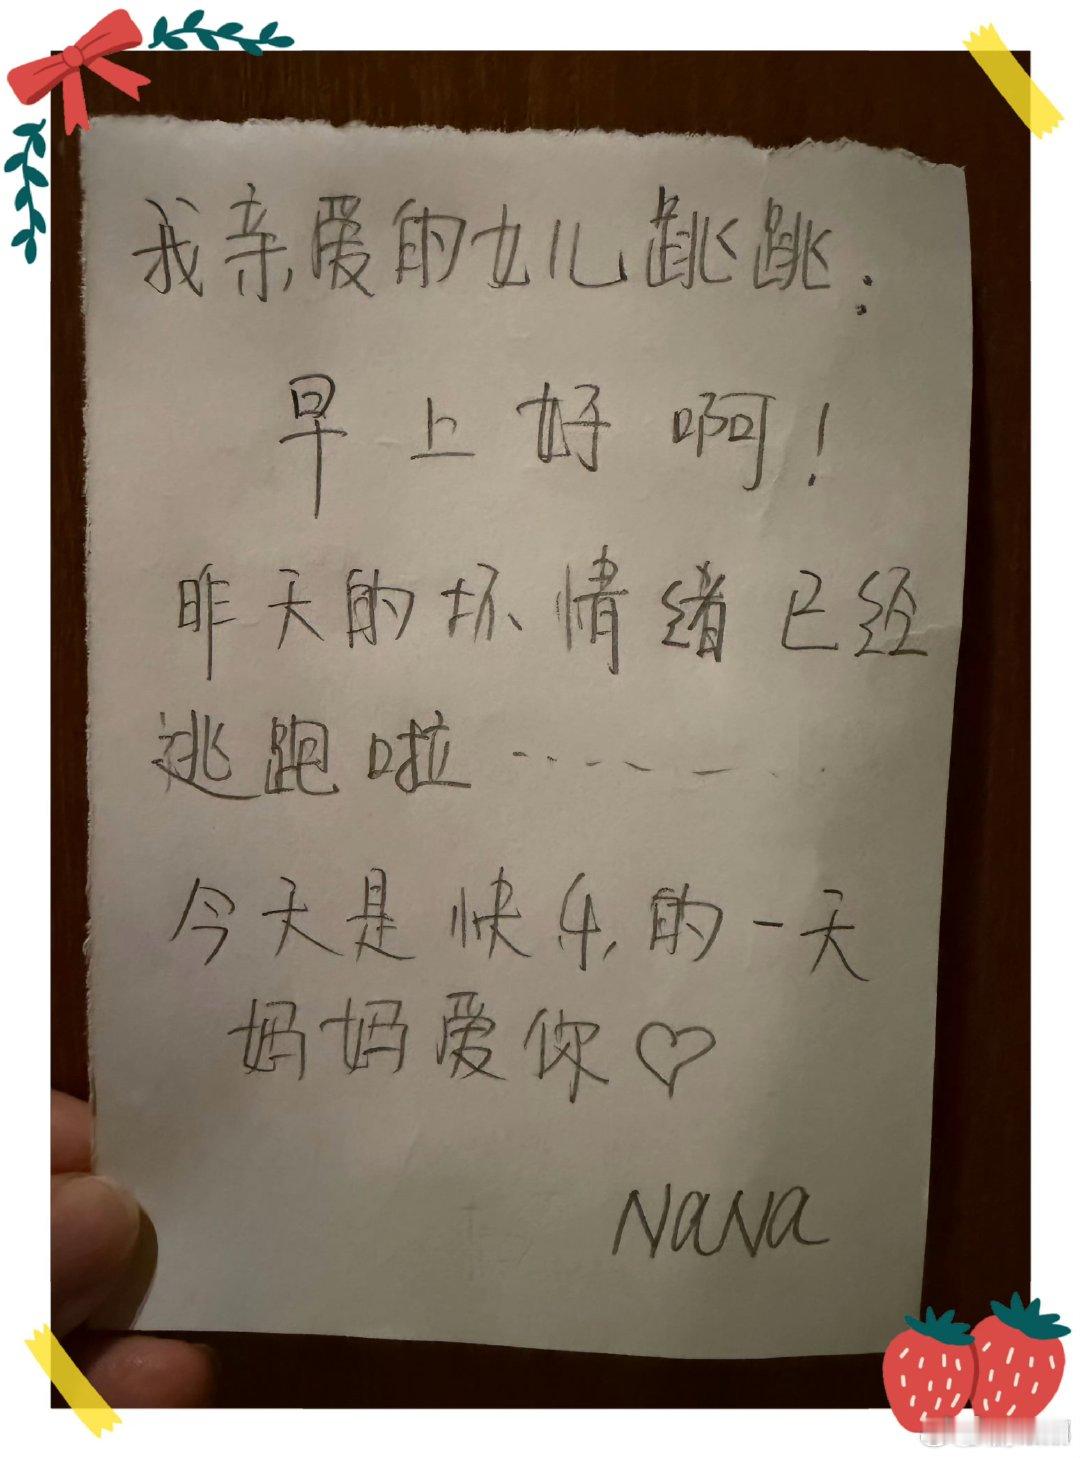 我亲爱的女儿跳跳:
早上好啊!
昨天的坏情绪已经
逃跑啦…………
今天是快乐的一天
妈妈爱你♡
NaNa